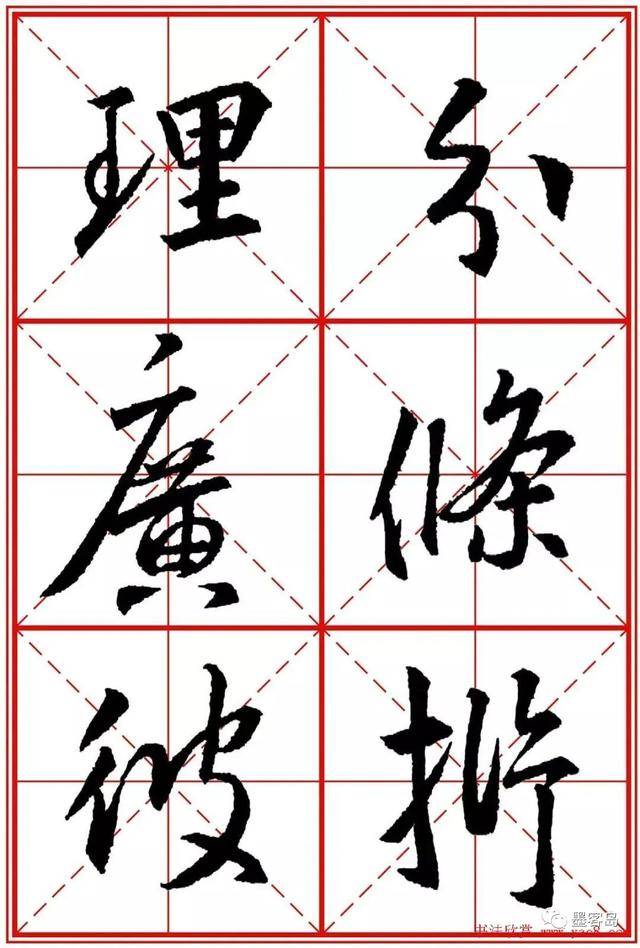 分條析理
廣彼
墨客岛
书法欣赏